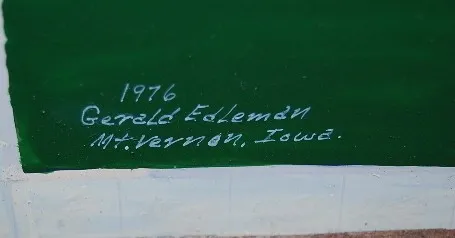 1976
Gerald Edleman
Mt. Vernon, Iowa.